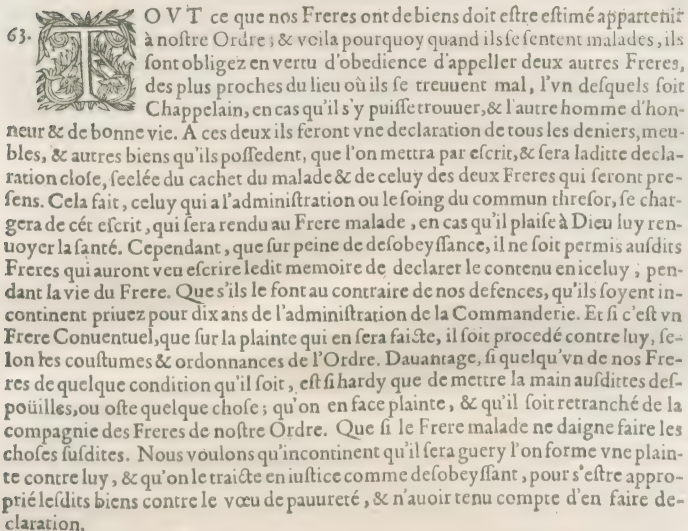 TOVT ce que nos Freres ont de biens doit eſtre eſtimé appartenir
63. à noſtre Ordre ; & voila pourquoy quand ils ſe ſentent malades, ils
ſont obligez en vertu d'obedience d'appeller deux autres Freres,
des plus proches du lieu où ils ſe treuuent mal, l'vn deſquels ſoit
Chappelain, en cas qu'il s'y puiſſe trouuer, & l'autre homme d'hon-
neur & de bonne vie. A ces deux ils feront vne declaration de tous les deniers, meu-
bles, & autres biens qu'ils poſſedent, que l'on mettra par eſcrit, & ſera laditte decla-
ration cloſe, ſeelée du cachet du malade & de celuy des deux Freres qui ſeront pre-
ſens. Cela fait, celuy qui a l'adminiſtration ou le ſoing du commun threſor, ſe char-
gera de cét eſcrit, qui ſera rendu au Frere malade, en cas qu'il plaiſe à Dieu luy ren-
uoyer la ſanté. Cependant, que ſur peine de deſobeyſſance, il ne ſoit permis auſdits
Freres qui auront veu eſcrire ledit memoire de declarer le contenu en iceluy, pen-
dant la vie du Frere. Que s'ils le font au contraire de nos defences, qu'ils ſoyent in-
continent priuez pour dix ans de l'adminiſtration de la Commanderie. Et ſi c'eſt vn
Frere Conuentuel, que ſur la plainte qui en ſera faicte, il ſoit procedé contre luy, ſe-
lon les couſtumes & ordonnances de l'Ordre. Dauantage, ſi quelqu'vn de nos Fre-
res de quelque condition qu'il ſoit, eſt ſi hardy que de mettre la main auſdittes deſ-
poüilles, ou oſte quelque choſe ; qu'on en face plainte, & qu'il ſoit retranché de la
compagnie des Freres de noſtre Ordre. Que ſi le Frere malade ne daigne faire les
choſes ſuſdites. Nous voulons qu'incontinent qu'il ſera guery l'on forme vne plain-
te contre luy, & qu'on le traicte en iuſtice comme deſobeyſſant, pour s'eſtre appro-
prié leſdits biens contre le vœu de pauureté, & n'auoir tenu compte d'en faire de-
claration.